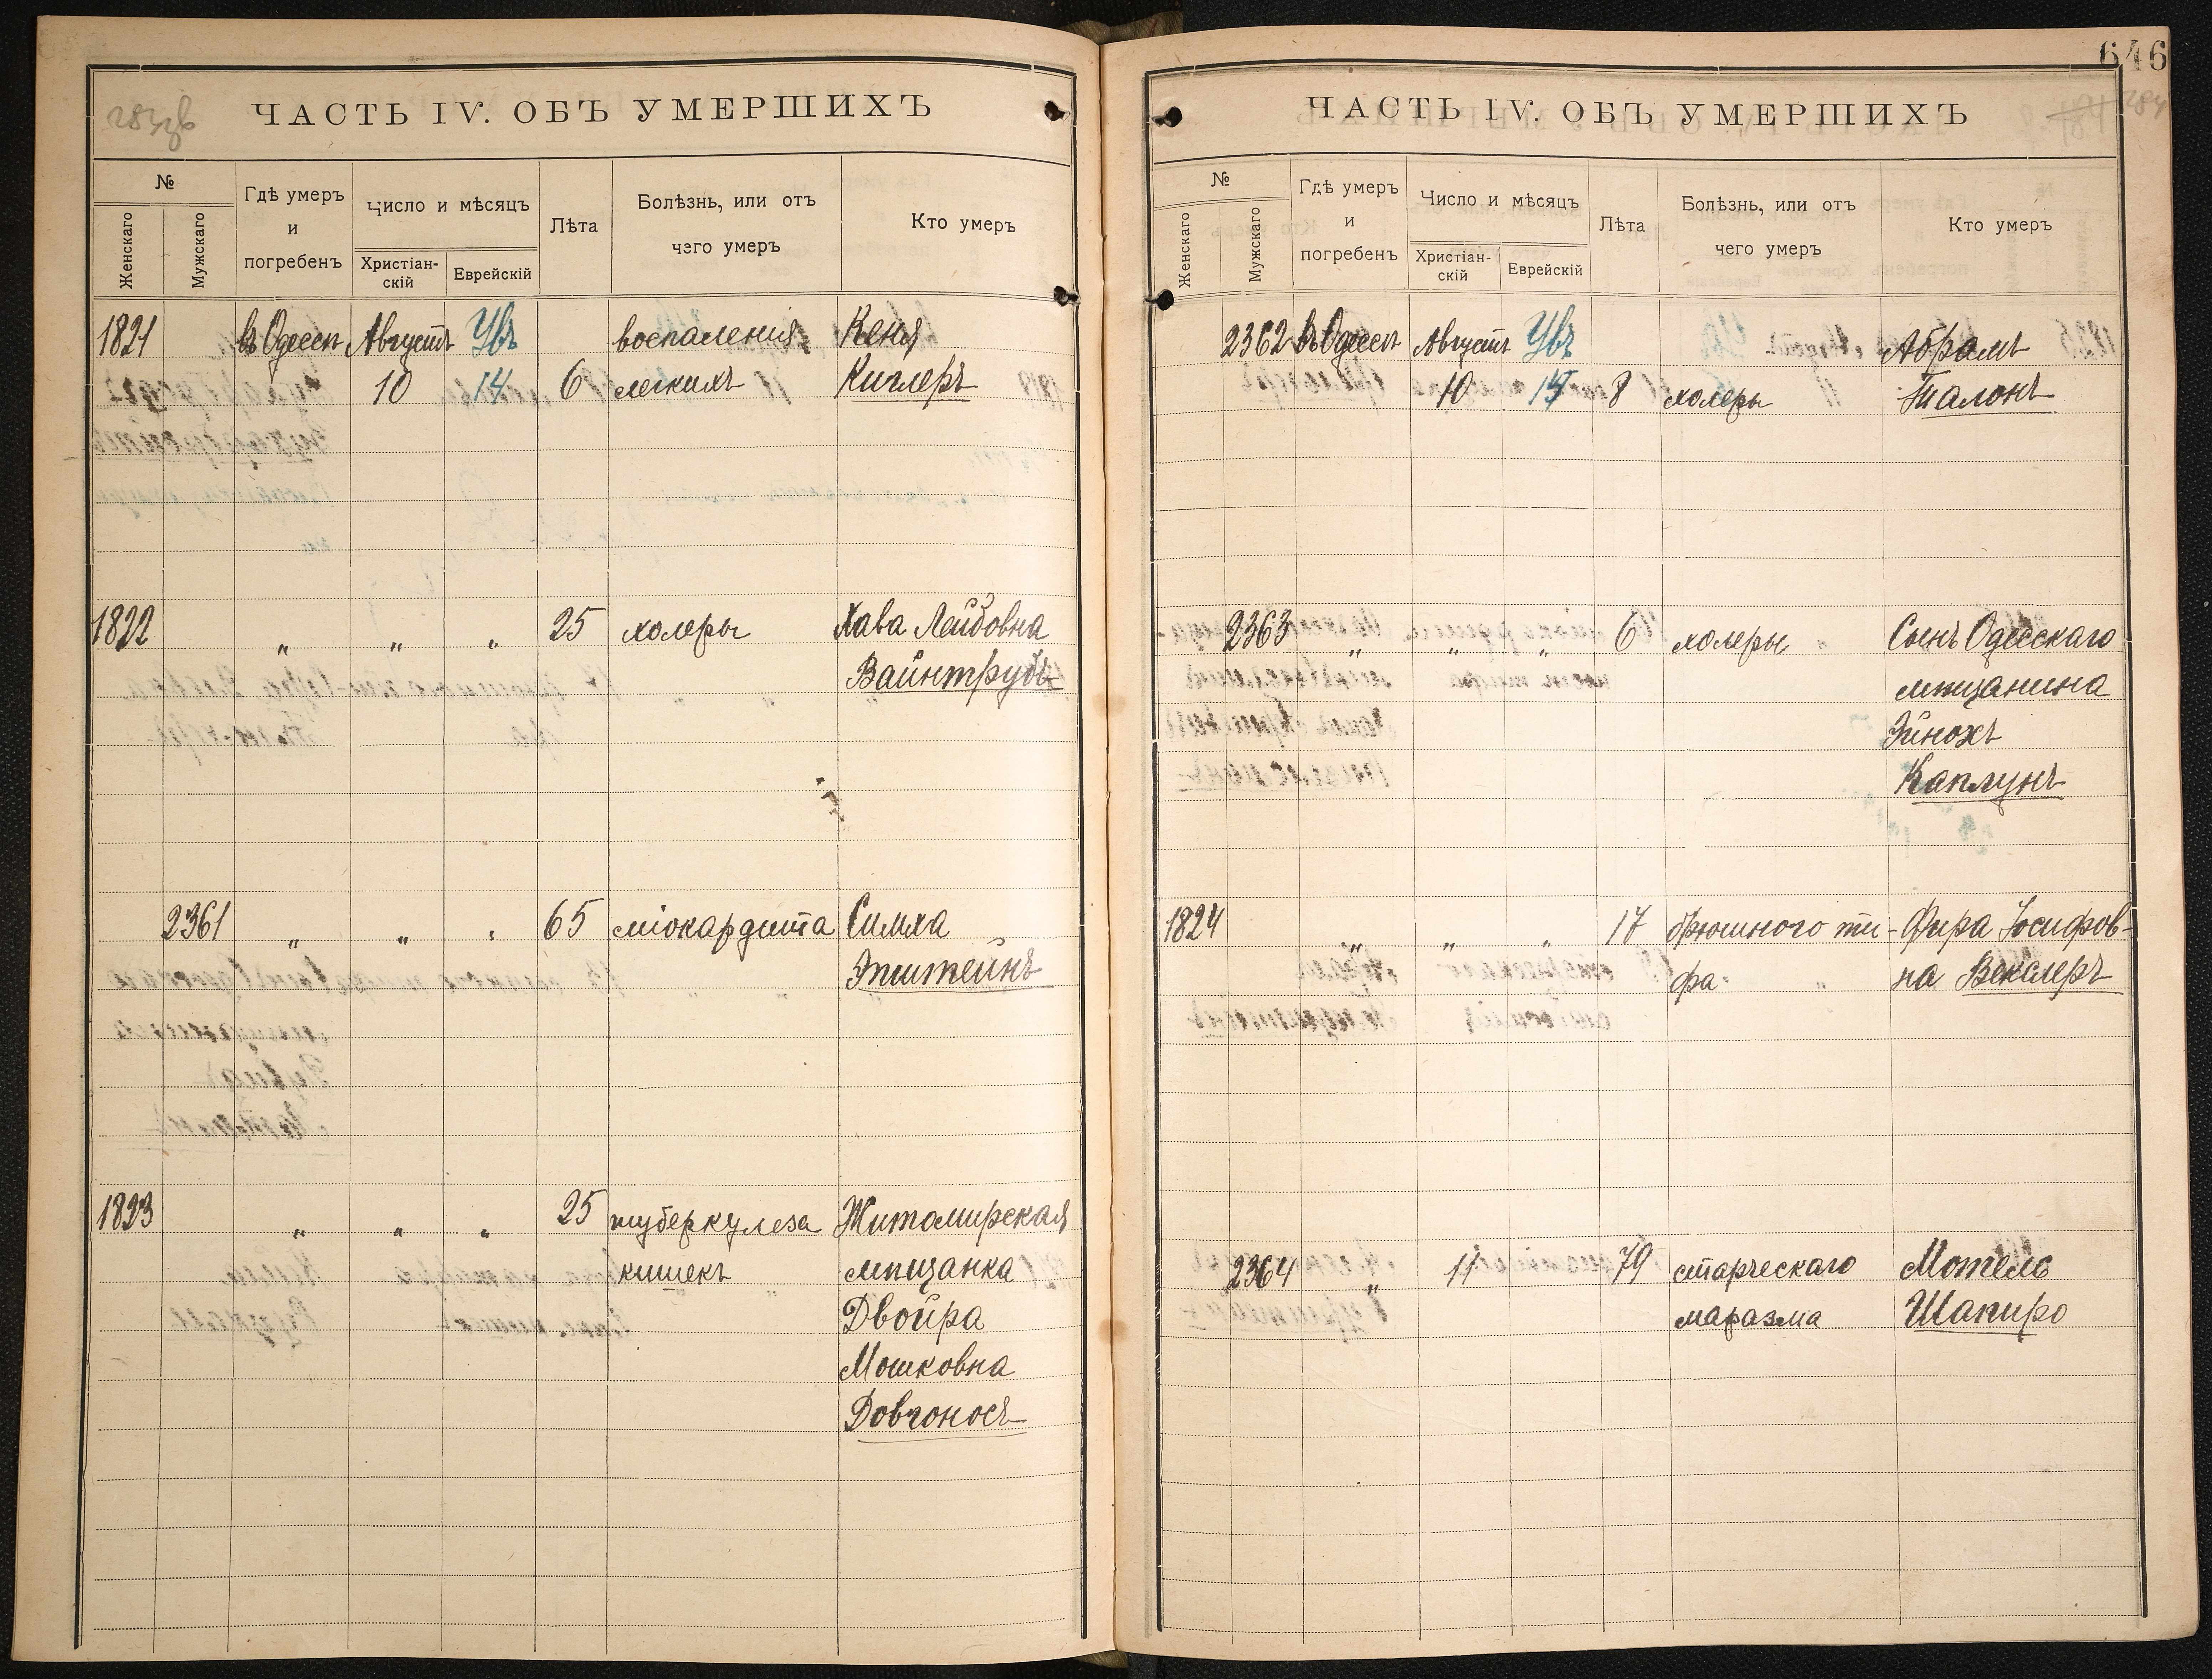 ЧАСТЬ IV. ОБЪ УМЕРШИХЪ
№
Женскаго
Мужскаго
Гдѣ умеръ
и
погребенъ
Число и мѣсяцъ
Христіан-
скій
Еврейскій
Лѣта
Болѣзнь, или отъ
чего умеръ
Кто умеръ
1821 въ Одессѣ Августъ Увъ воспаленія Кеня
10 14 6 легкихъ Киглеръ
1822 „ „ „ 25 холеры Хава Лейбовна
Вайнтрубъ
2361 „ „ „ 65 міокардита Симха
Эпштейнъ
1823 „ „ „ 25 туберкулеза Житомирская
кишекъ мѣщанка
Двойра
Мошковна
Довгоносъ
646
ЧАСТЬ IV. ОБЪ УМЕРШИХЪ
№
Женскаго
Мужскаго
Гдѣ умеръ
и
погребенъ
Число и мѣсяцъ
Христіан-
скій
Еврейскій
Лѣта
Болѣзнь, или отъ
чего умеръ
Кто умеръ
2362 въ Одессѣ Августъ Увъ Абрамъ
10 8 холеры Талонъ
2363 „ „ „ 6 холеры Сынъ Одесскаго
мѣщанина
Эйнохъ
Каплунъ
1824 „ „ „ 17 брюшного ти- Фира Іосифов-
фа на Векслеръ
2364 „ 11 79 старческаго Мотель
маразма Шапиро